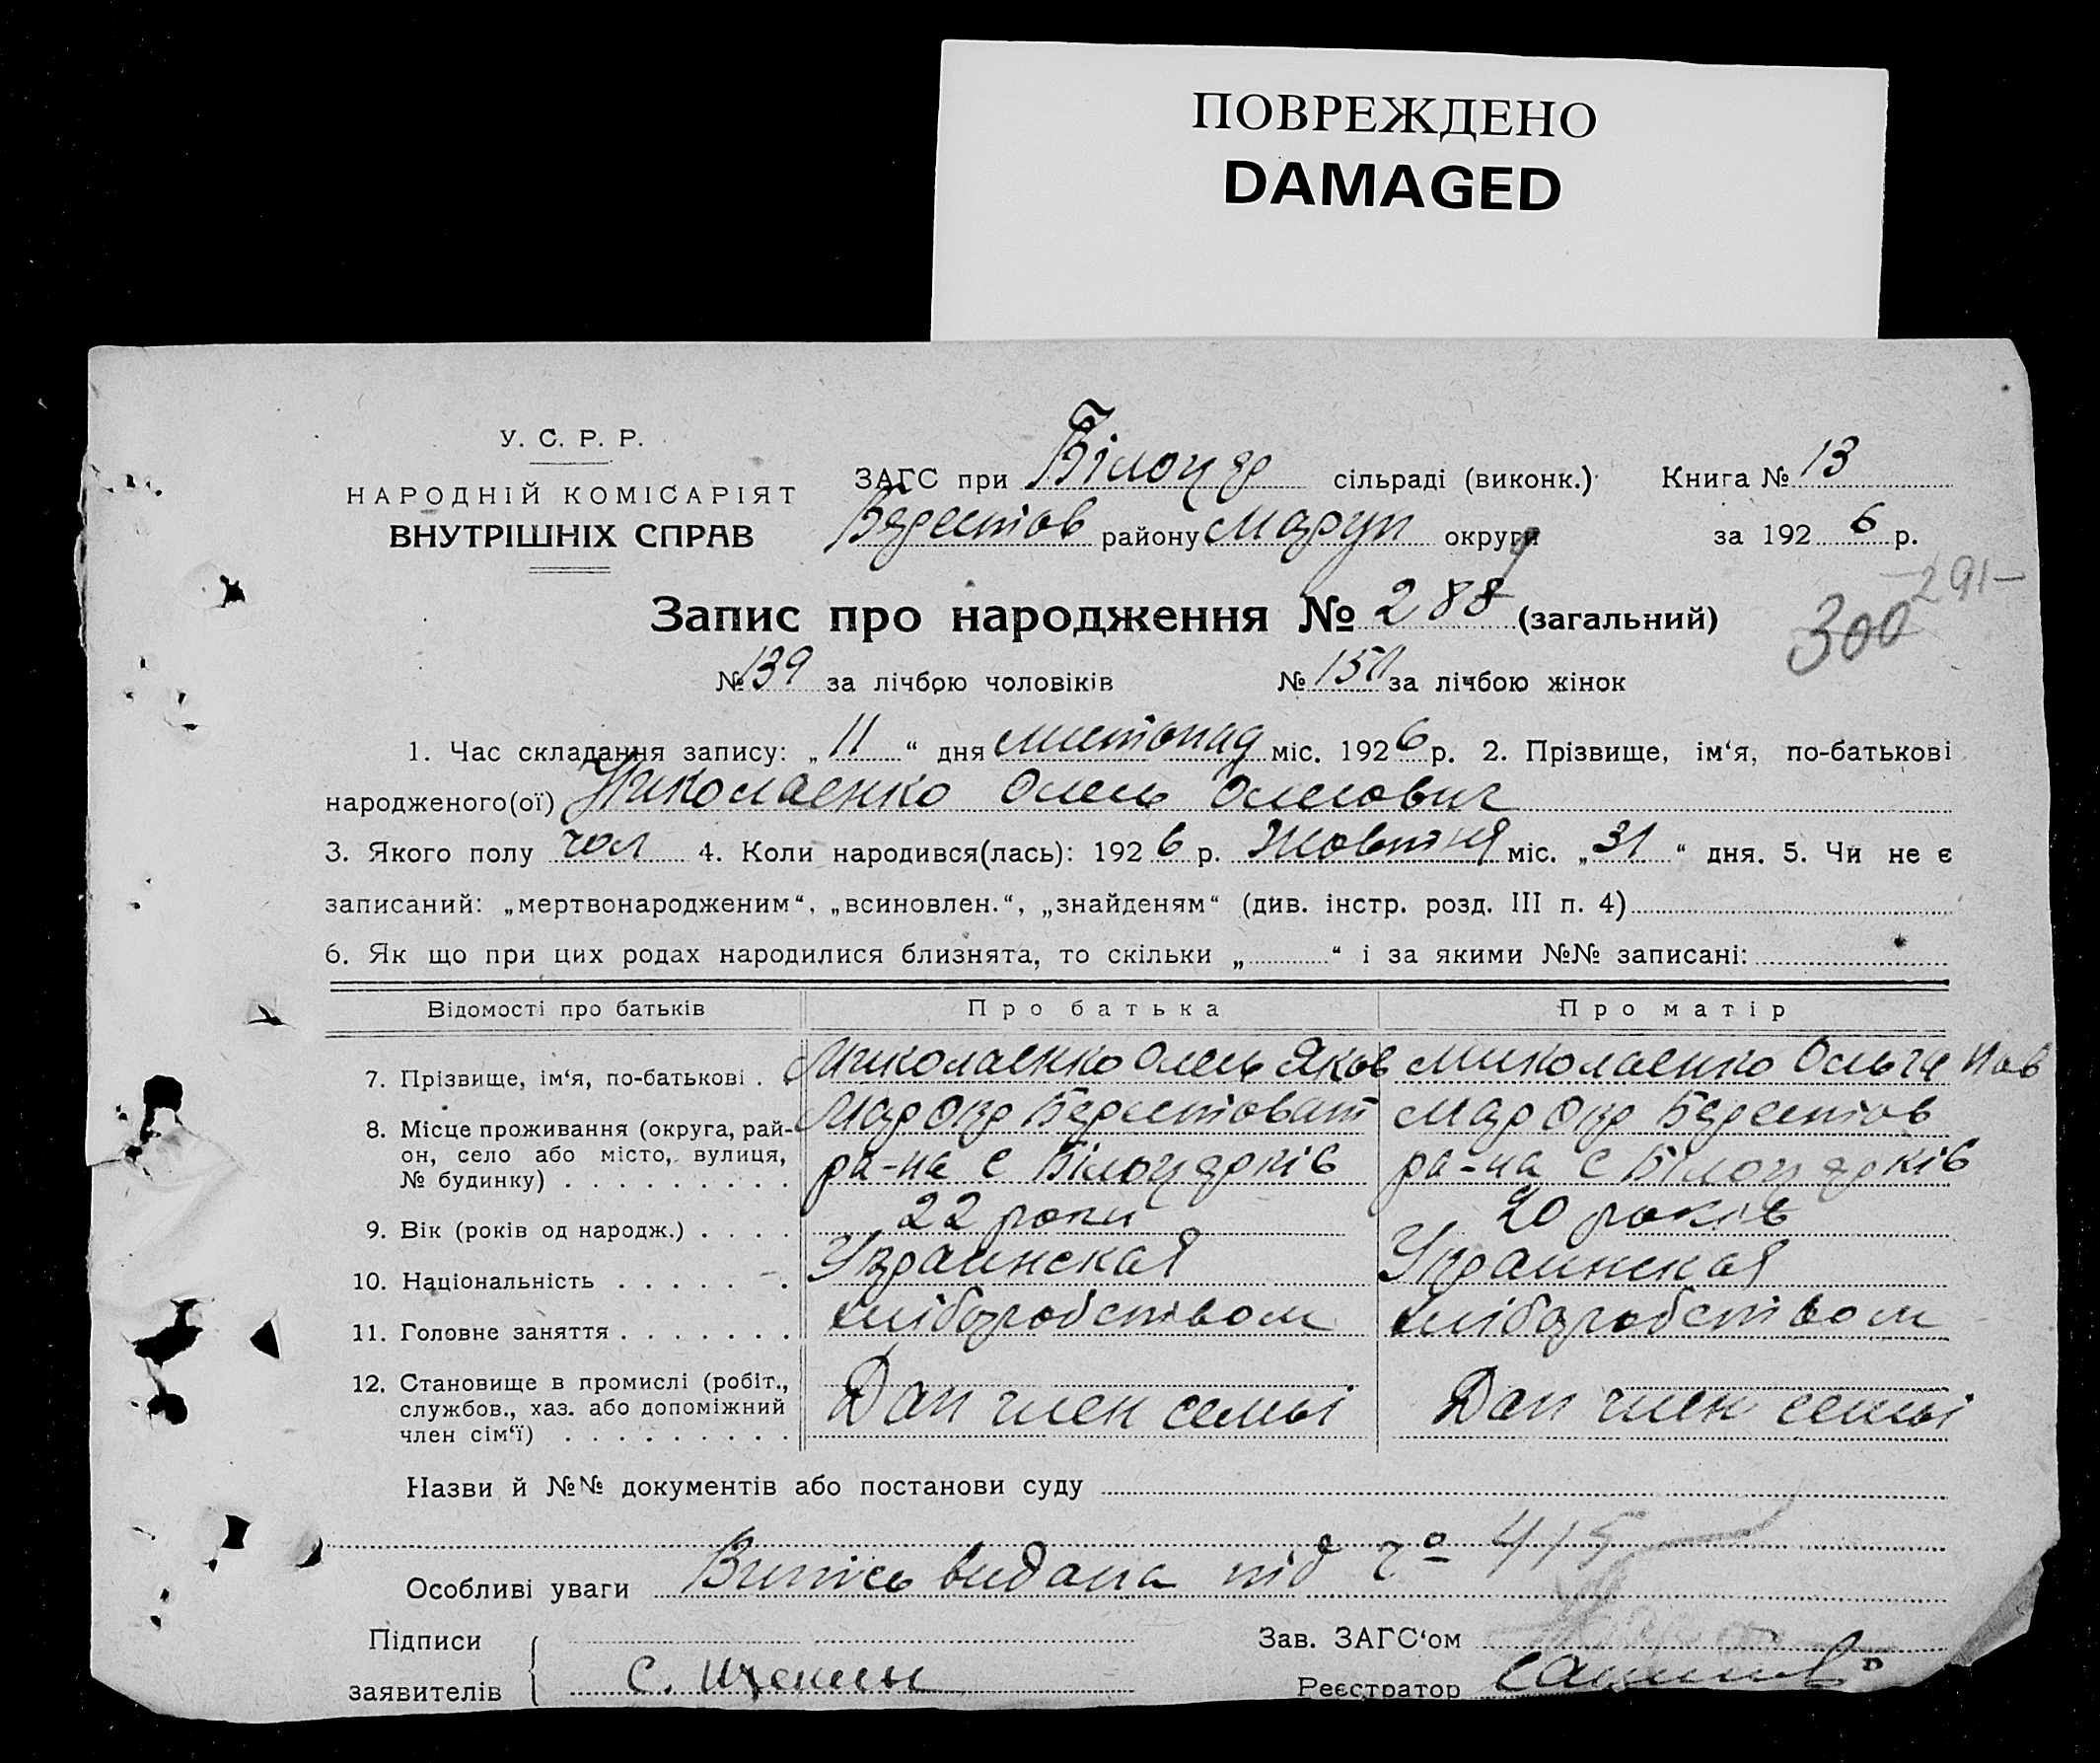 ПОВРЕЖДЕНО
DAMAGED
У. С. Р. Р.
НАРОДНІЙ КОМІСАРІЯТ
ВНУТРІШНІХ СПРАВ
ЗАГС при Білоцер сільраді (виконк.) Книга № 13
Берестов району Маруп округи за 1926 р.
-291-
300
Запис про народження № 288 (загальний)
№ 139 за лічбою чоловіків № 150 за лічбою жінок
1. Час складання запису: „11“ дня листопад міс. 1926 р. 2. Прізвище, ім‘я, по-батькові
народженого(ої) Николаенко Олесь Олесович
3. Якого полу чол 4. Коли народився(лась): 1926 р. Жовтня міс. „31“ дня. 5. Чи не є
записаний: „мертвонародженим“, „всиновлен.“, „знайденям“ (див. інстр. розд. III п. 4)
6. Як що при цих родах народилися близнята, то скільки „ “ і за якими №№ записані:
Відомості про батьків Про батька Про матір
7. Прізвище, ім‘я, по-батькові . Миколаенко Олесь Яков Миколаенко Ольга Пав
8. Місце проживання (округа, рай- Мар Окр Берестоват Мар Окр Берестов
он, село або місто, вулиця, ра-на с Білоцерків ра-на с Білоцерків
№ будинку) . . . . . . . . .
9. Вік (років од народж.) . . . . 22 роки 20 років
10. Національність . . . . . . Украинская Украинская
11. Головне заняття . . . . . . . хліборобством хліборобством
12. Становище в промислі (робіт., Доп член семьі Доп член семьі
службов., хаз. або допоміжний
член сім‘ї) . . . . . . . . .
Назви й №№ документів або постанови суду
Особливі уваги Випись видана під 415
Підписи Зав. ЗАГС‘ом
заявителів С. Реєстратор